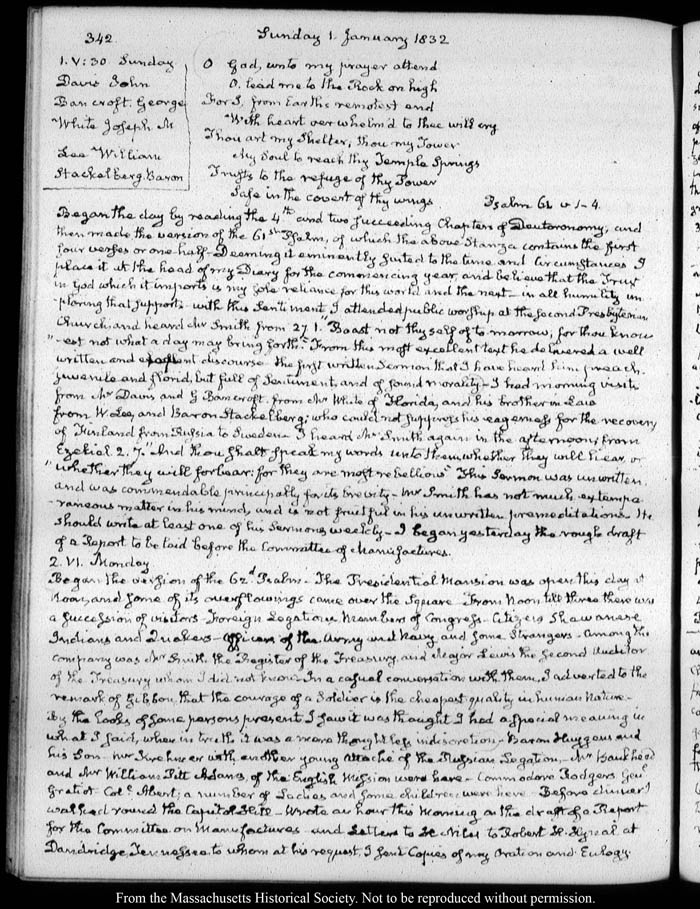 342
Sunday 1. January 1832
1. V: 30 Sunday
Davis John
Bancroft. George
White Joseph M
Lee William
Stackelberg. Baron
O God, unto my prayer attend
O, lead me to the Rock on high
For I, from Earths remotest end
With heart overwhelm'd to thee will cry
Thou art my Shelter, thou my Tower
My Soul to reach thy Temple Springs
Trusts to the refuge of thy Power
Safe in the covert of thy wings.
Psalm 61. v 1-4.
Began the day by reading the 4th and two succeeding Chapters of Deuteronomy, and
then made the version of the 61st Psalm, of which the above Stanza contains the first
four verses or one half. Deeming it eminently suited to the time and circumstances I
place it at the head of my Diary for the commencing year, and believe that the Trust
in God which it imports is my sole reliance for this world and the next— in all humility im-
-ploring that support— with this Sentiment I attended public worship at the Second Presbyterian
Church, and heard Mr Smith from 27 1. Boast not thyself of to morrow; for thou know-
"-est not what a day may bring forth." From this most excellent text he delivered a well
written and eloquent discourse. the first written Sermon that I have heard him preach.
juvenile and florid, but full of Sentiment, and of sound morality— I had morning visits
from Mr Davis and G Bancroft. from Mr White of Florida, and his brother in Law
from W. Lee, and Baron Stackelberg; who could not suppress his eagerness for the recovery
of Finland from Russia to Sweden. I heard Mr Smith again in the afternoon; from
Ezekiel 2. 7. "And thou shalt speak my words unto them, whether they will hear, or
"whether they will forbear: for they are most rebellious" This Sermon was unwritten,
and was commendable principally for its brevity— Mr Smith has not much extempo-
-raneous matter in his mind, and is not fruitful in his unwritten premeditations. He
should write at least one of his Sermons weekly— I began yesterday the rough draft
of a Report to be laid before the Committee of Manufactures.
2. VI. Monday
Began the version of the 62d Psalm— The Presidential Mansion was open this day at
Noon, and some of its overflowings came over the Square— From Noon till three there was
a succession of visitors— Foreign Legations, Members of Congress— Citizens Shawanese
Indians and Quakers— Officers of the Army and Navy, and some Strangers— Among the
company was Mr Smith the Register of the Treasury, and Major Lewis the Second Auditor
of the Treasury whom I did not know— In a casual conversation with them, I adverted to the
remark of Gibbon, that the courage of a Soldier is the cheapest quality in human Nature—
By the looks of some persons present I saw it was thought I had a special meaning in
what I said, when in truth it was a mere thoughtless indiscretion— Baron Huygens and
his Son— Mr Krehmer with another young Attaché of the Russian Legation— Mr Bankhead
and Mr William Pitt Adams, of the English Mission were here— Commodore Rodgers Genl
Gratiot. Coll Abert; a number of Ladies and some children were here— Before dinner I
walked round the Capitol Hill— Wrote an hour this Morning on the draft of a Report
for the Committee on Manufactures— and Letters to H Niles to Robert H. Hynal at
Dandridge, Tennessee to whom at his request, I sent Copies of my Oration and Eulogy.
From the Massachusetts Historical Society. Not to be reproduced without permission.